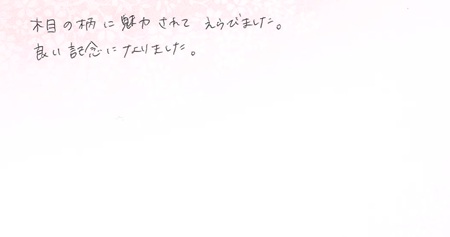 木目の柄に魅力されて えらびました。
良い記念になりました。